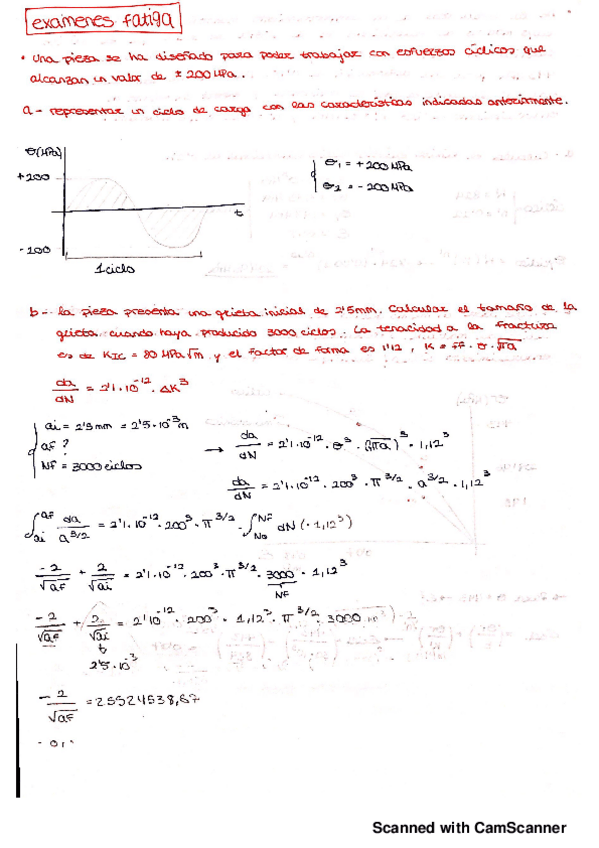 examenes fatiga
• una pieza se ha diseñado para poder trabajar con esfuerzos cíclicos que
alcanzan un valor de ± 200 MPa.
a- representar un ciclo de carga con las características indicadas anteriormente.
σ(MPa)
+200
-200
t
1 ciclo
σ1 = +200 MPa
σ2 = -200 MPa
b- la pieza presenta una grieta inicial de 2'5mm. Calcular el tamaño de la
grieta cuando haya producido 3000 ciclos. La tenacidad a la fractura
es de KIC = 80 MPa√m y el factor de forma es 1'12, K = ff · σ · √πa
da/dN = 2'1·10^-12 · ΔK^3
ai = 2'5 mm = 2'5·10^-3 m
aF?
NF = 3000 ciclos
→ da/dN = 2'1·10^-12 · σ^3 · (√πa)^3 · 1,12^3
da/dN = 2'1·10^-12 · 200^3 · π^3/2 · a^3/2 · 1,12^3
∫ai^aF da/a^3/2 = 2'1·10^-12 · 200^3 · π^3/2 · ∫No^NF dN (·1,12^3)
-2/√aF + 2/√ai = 2'1·10^-12 · 200^3 · π^3/2 · 3000 · 1,12^3
NF
-2/√aF + 2/√ai = 2'10^-12 · 200^3 · 1,12^3 · π^3/2 · 3000
2'5·10^-3
-2/√aF = 25524538,67
Scanned with CamScanner